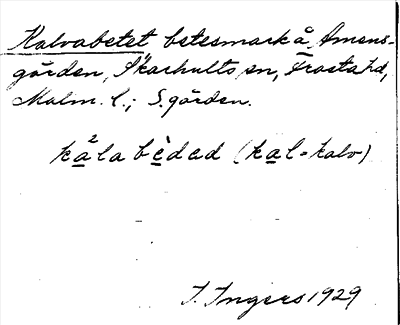 Kalvabetet, betesmark å Amens-
gården, Skarhults sn, Frosta hd,
Malm. l.; S.gården.
kalabèdad (kal = kalv)
I. Ingers 1929